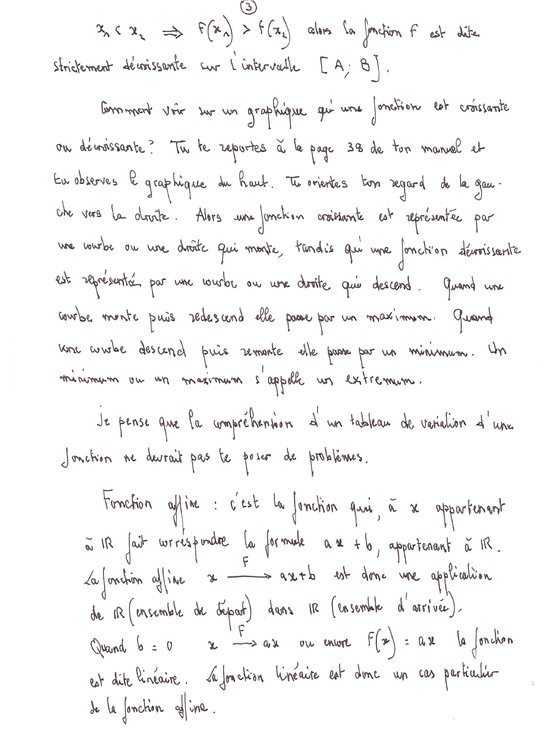 ③
x₁ < x₂ ⟹ F(x₁) > F(x₂) alors la fonction F est dite
strictement décroissante sur l'intervalle [A; B].
Comment voir sur un graphique qu'une fonction est croissante
ou décroissante? Tu te reportes à la page 38 de ton manuel et
tu observes le graphique du haut. Tu orientes ton regard de la gau-
che vers la droite. Alors une fonction croissante est représentée par
une courbe ou une droite qui monte, tandis qu'une fonction décroissante
est représentée par une courbe ou une droite qui descend. Quand une
courbe monte puis redescend elle passe par un maximum. Quand
une courbe descend puis remonte elle passe par un minimum. Un
minimum ou un maximum s'appelle un extremum.
Je pense que la compréhension d'un tableau de variation d'une
fonction ne devrait pas te poser de problèmes.
Fonction affine : c'est la fonction qui, à x appartenant
à IR fait correspondre la formule ax + b, appartenant à IR.
La fonction affine x —F→ ax+b est donc une application
de IR (ensemble de départ) dans IR (ensemble d'arrivée).
Quand b = 0 x —F→ ax ou encore F(x) = ax la fonction
est dite linéaire. La fonction linéaire est donc un cas particulier
de la fonction affine.